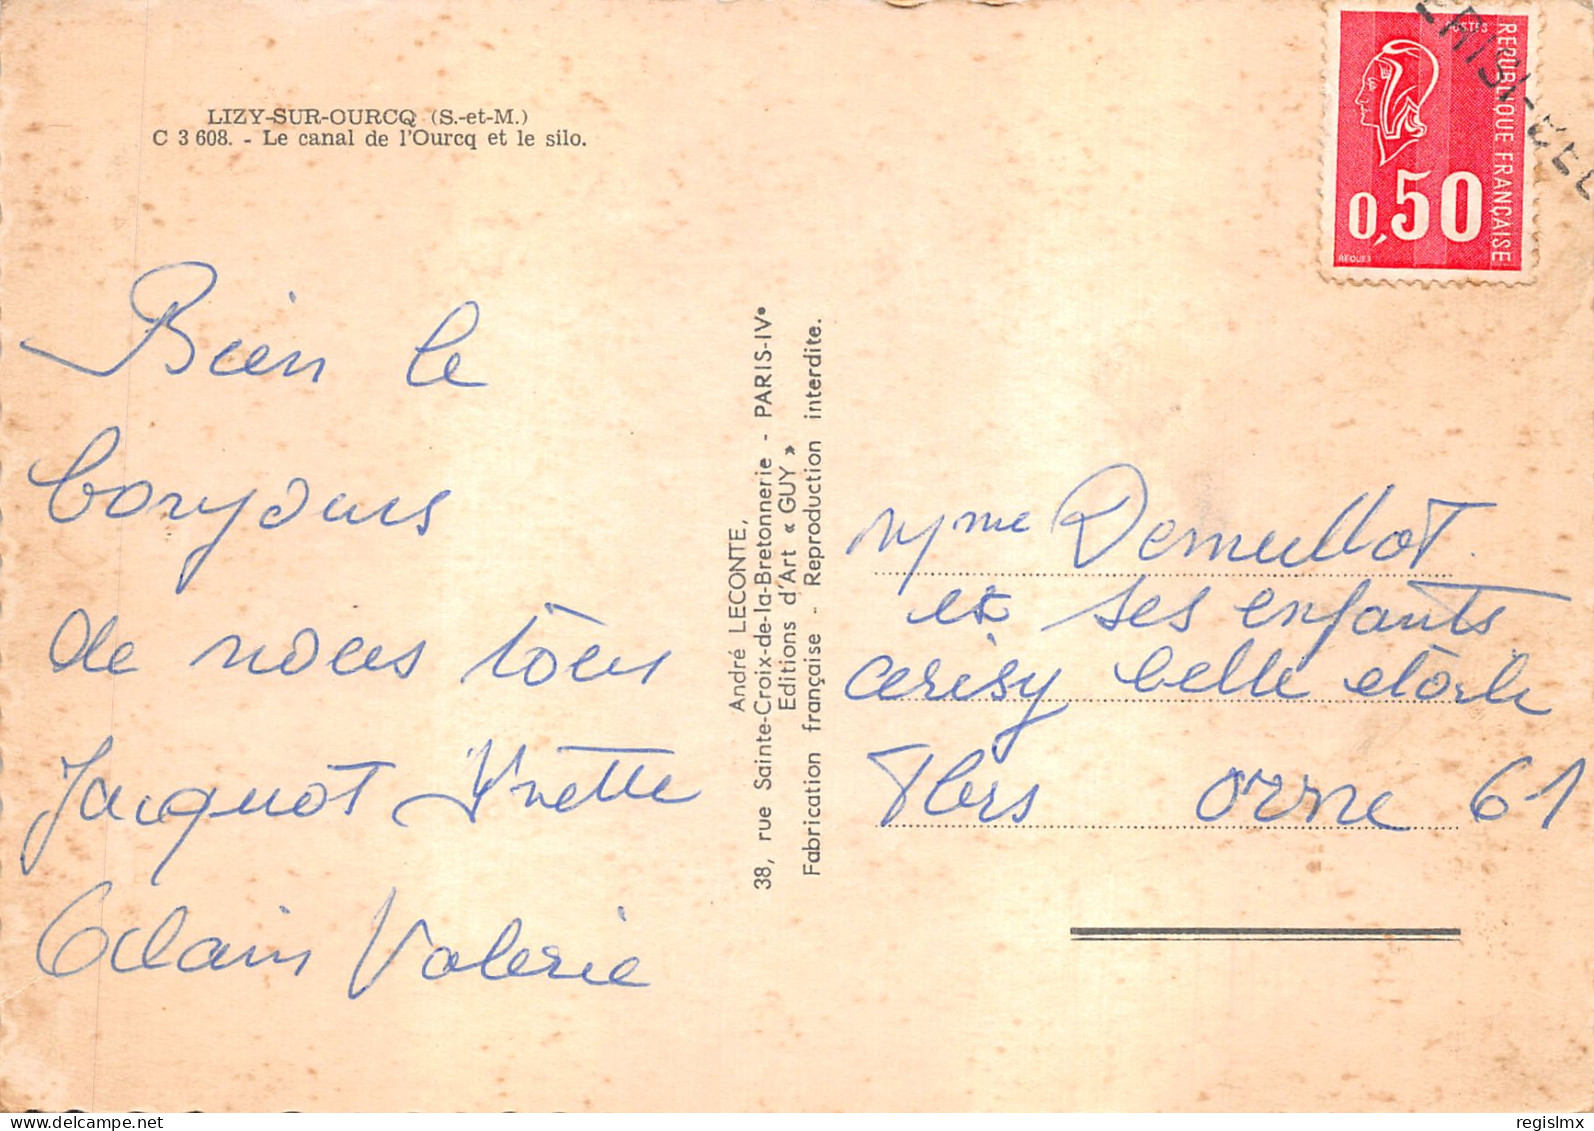 LIZY-SUR-OURCQ (S.-et-M.)
C 3 608. - Le canal de l'Ourcq et le silo.
Bien le
bonjours
de nous tous
Jacquot Yvette
Alain Valerie
André LECONTE,
38, rue Sainte-Croix-de-la-Bretonnerie - PARIS-IVe
Editions d'Art « GUY »
Fabrication française - Reproduction interdite.
POSTES
REPUBLIQUE FRANÇAISE
0,50
BEQUET
ERISY-BEL
Mme Demullot
et ses enfants
cerisy belle etoile
Flers orne 61
delcampe.net
regislmx